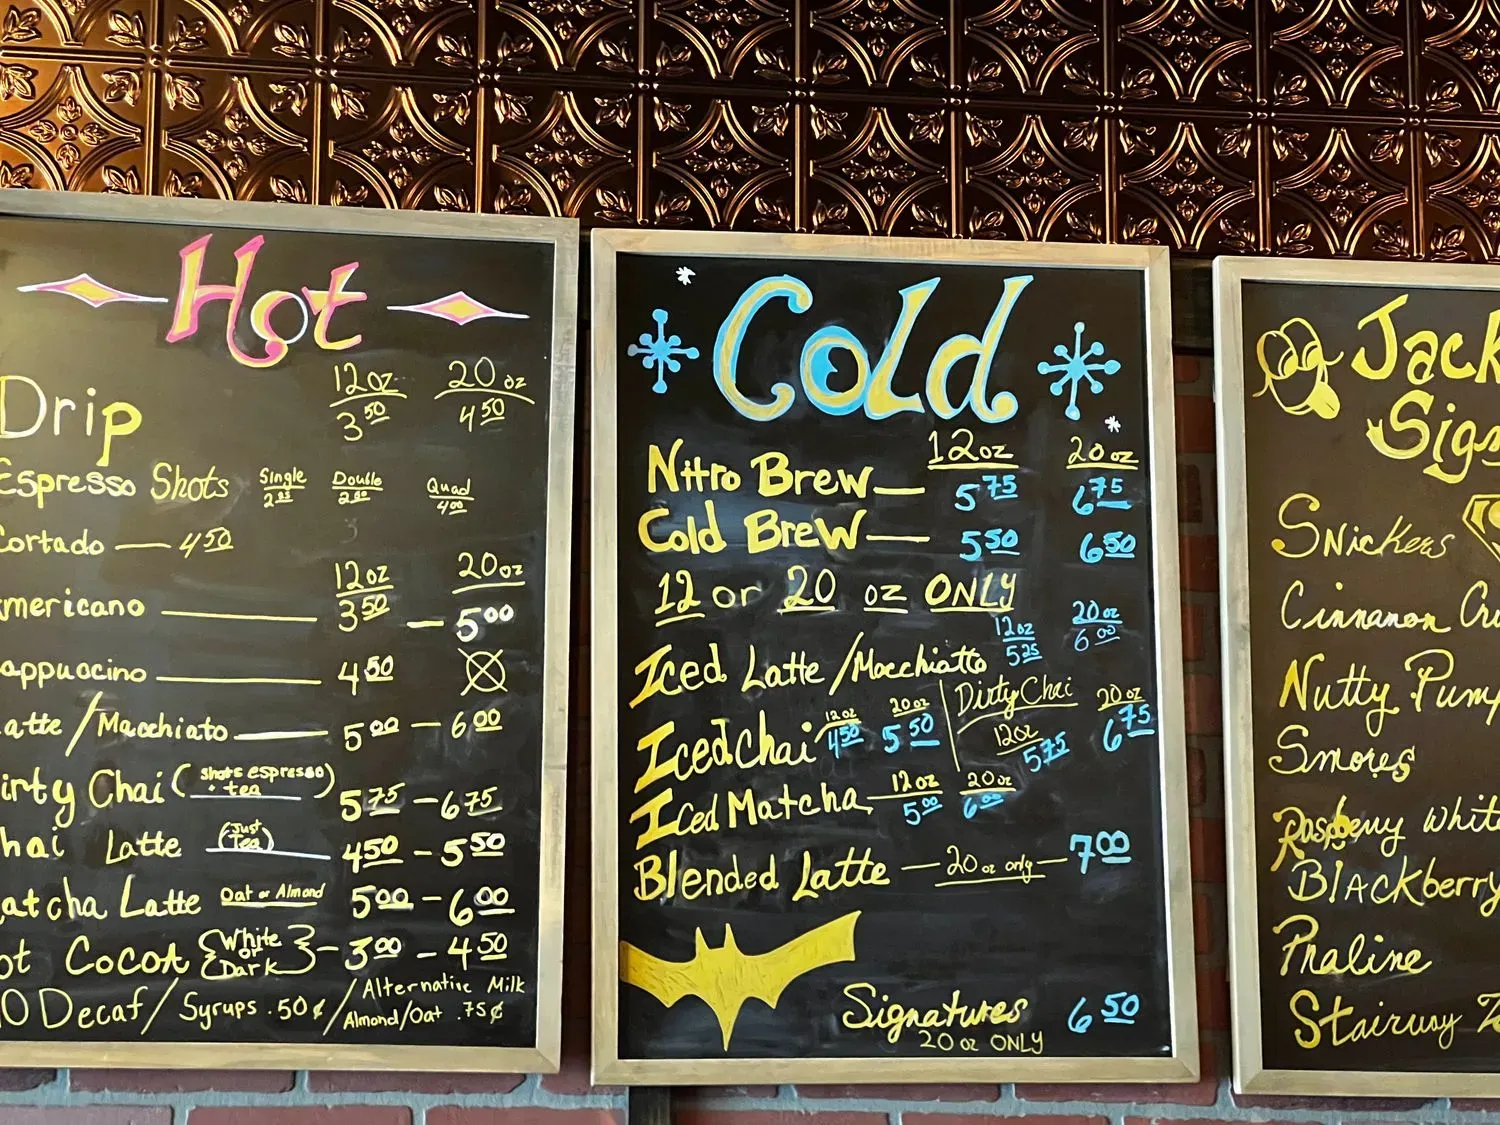 Hot
12oz 20oz
Drip 3.50 4.50
Espresso Shots Single Double Quad
4.00
Cortado — 4.50
12oz 20oz
mericano — 3.50 — 5.00
appuocino — 4.50
atte/Macchiato — 5.00 — 6.00
irty Chai (shots espresso + tea) 5.75 - 6.75
hai Latte (Just Tea) 4.50 - 5.50
atcha Latte Oat or Almond 5.00 - 6.00
ot Cocoa {White or Dark} - 3.00 - 4.50
Decaf/Syrups .50¢/Alternative Milk
Almond/Oat .75¢
Cold
12oz 20oz
Nitro Brew — 5.75 6.75
Cold Brew — 5.50 6.50
12 or 20 oz ONLY
12oz 20oz
Iced Latte/Macchiatto 5.25 6.00
Iced Chai 12oz 4.50 20oz 5.50
Dirty Chai 12oz 5.75 20oz 6.75
Iced Matcha 12oz 5.00 20oz 6.00
Blended Latte — 20oz only — 7.00
Signatures 6.50
20oz ONLY
Jack
Sign
Snickers
Cinnamon Cru
Nutty Pump
Smores
Raspberry White
Blackberry
Praline
Stairway